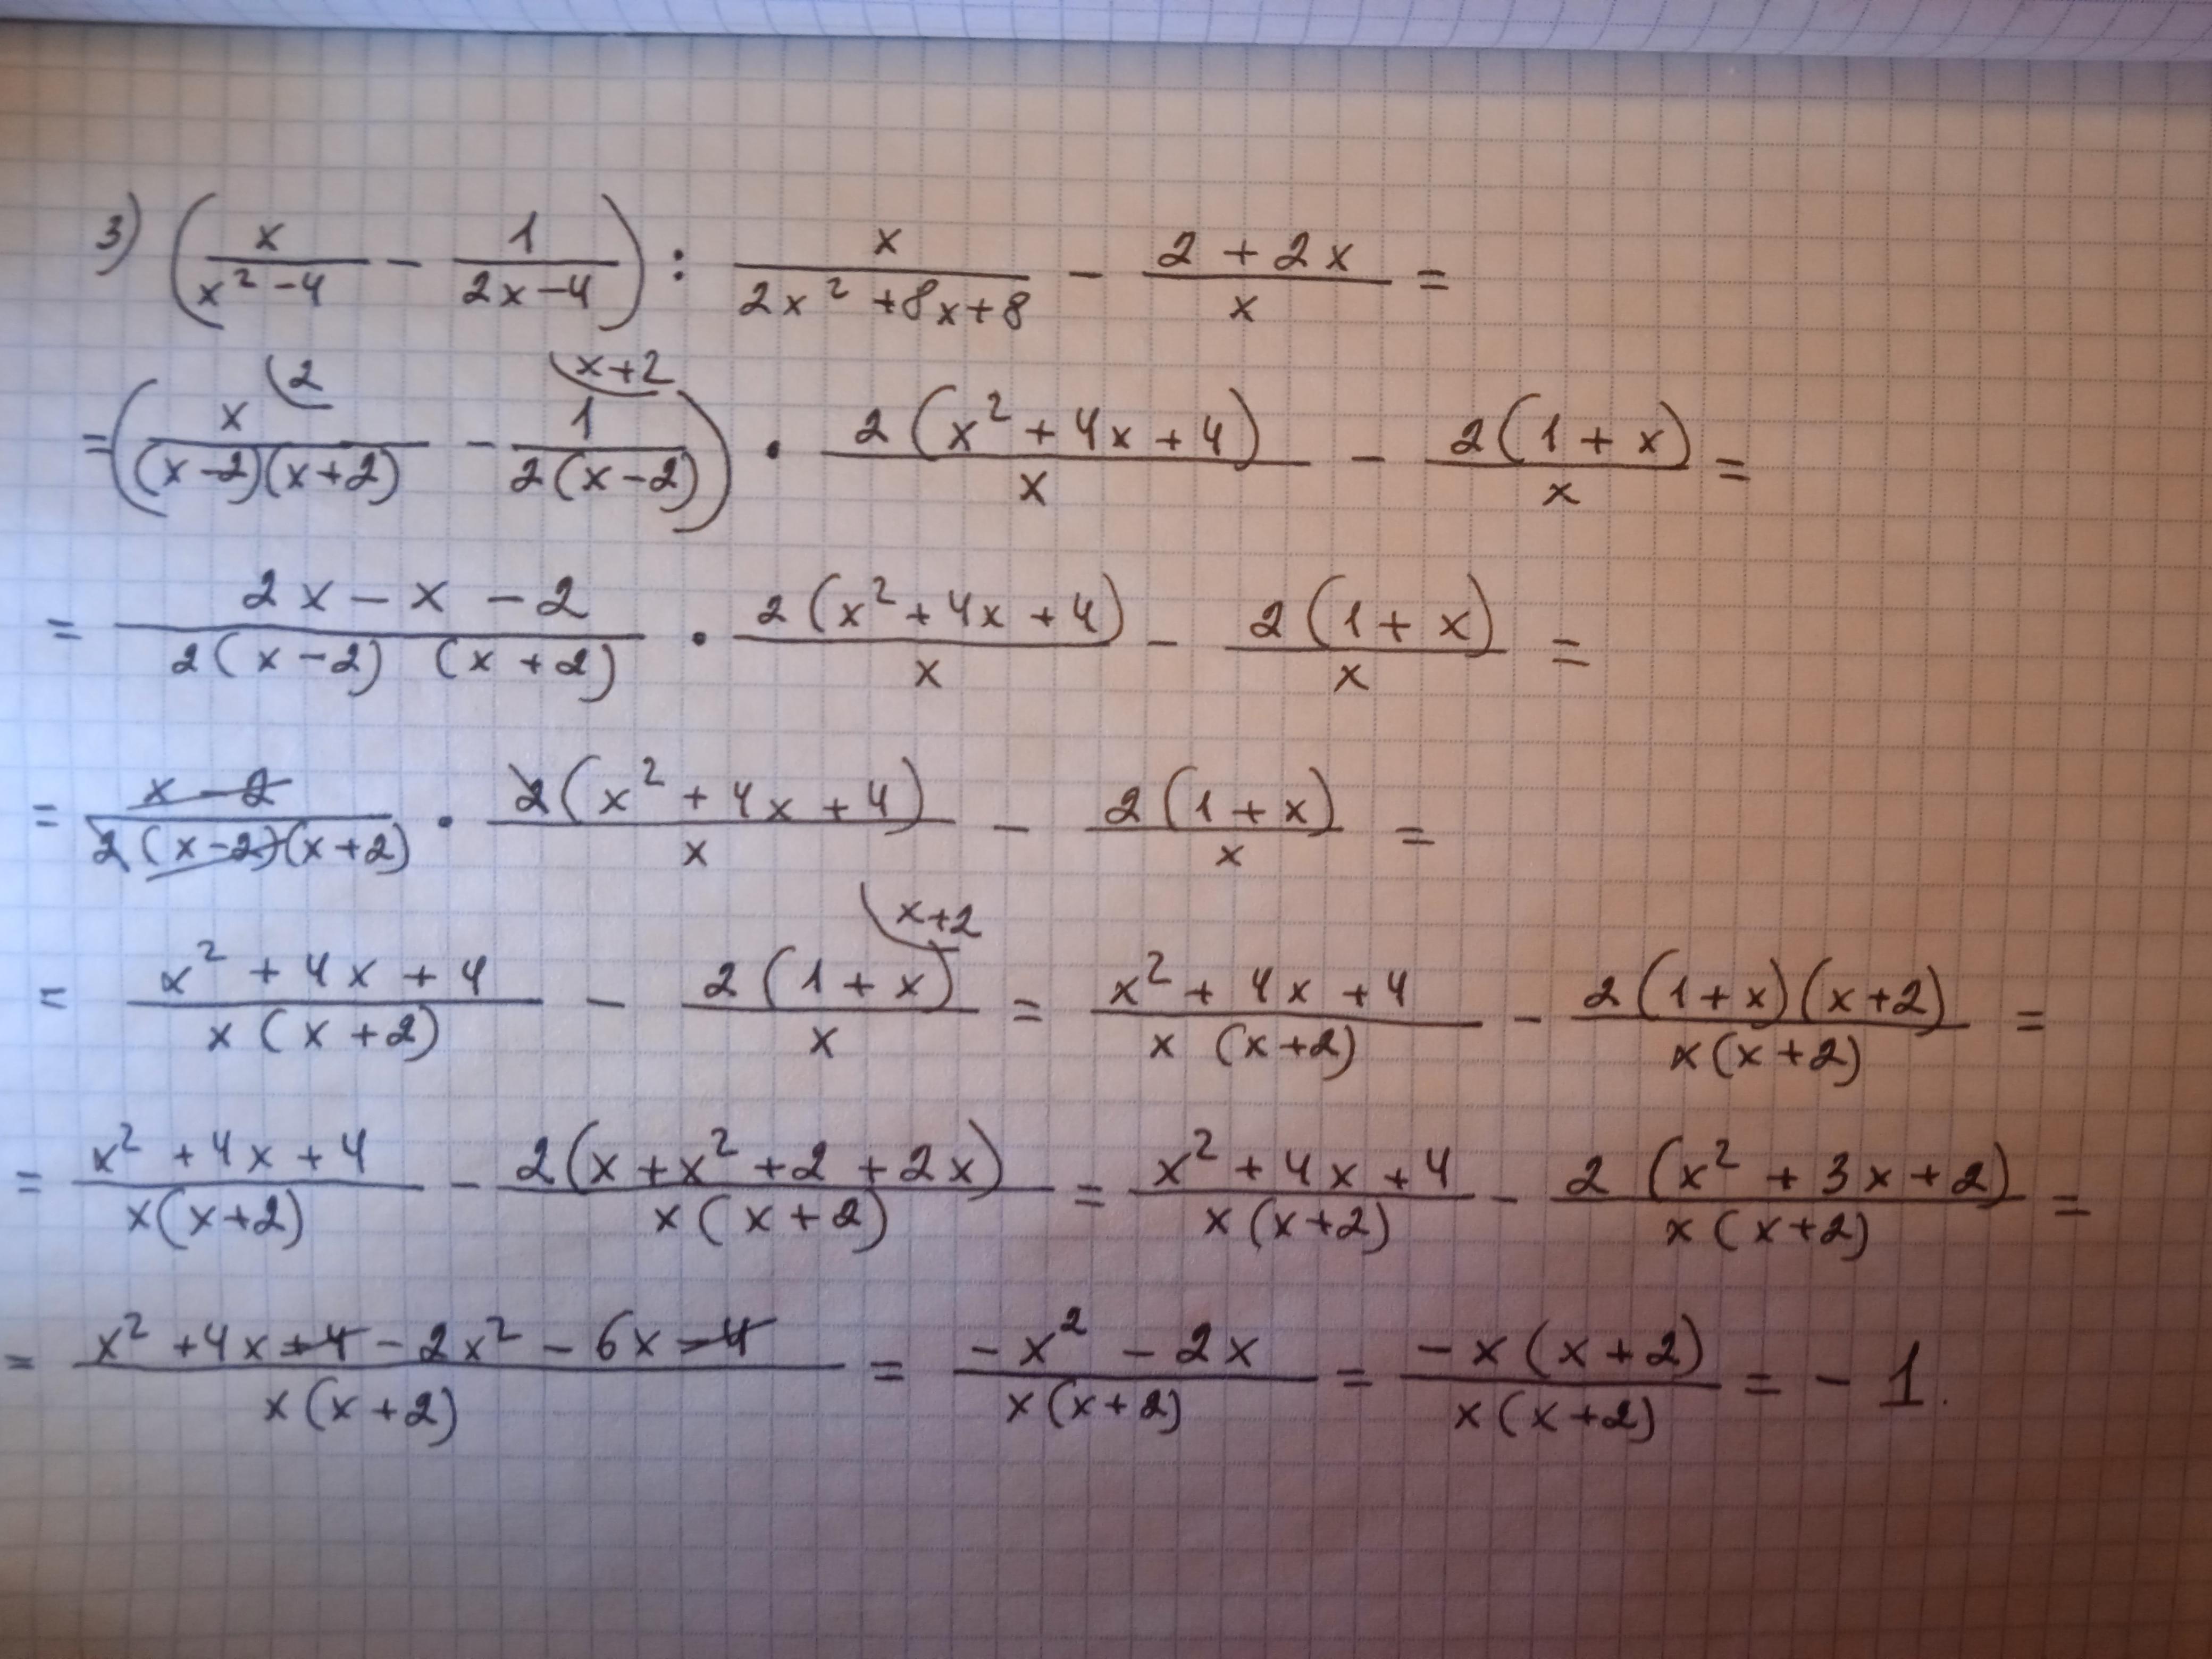 3) (x/(x² - 4) - 1/(2x - 4)) : x/(2x² + 8x + 8) - (2 + 2x)/x =
= (x/((x - 2)(x + 2)) (2 - 1/(2(x - 2)) (x + 2) · 2(x² + 4x + 4)/x - 2(1 + x)/x =
= (2x - x - 2)/(2(x - 2)(x + 2)) · 2(x² + 4x + 4)/x - 2(1 + x)/x =
= (x - 2)/(2(x - 2)(x + 2)) · 2(x² + 4x + 4)/x - 2(1 + x)/x =
= (x² + 4x + 4)/(x(x + 2)) - 2(1 + x)/x (x + 2 = (x² + 4x + 4)/(x(x + 2)) - 2(1 + x)(x + 2)/(x(x + 2)) =
= (x² + 4x + 4)/(x(x + 2)) - 2(x + x² + 2 + 2x)/(x(x + 2)) = (x² + 4x + 4)/(x(x + 2)) - 2(x² + 3x + 2)/(x(x + 2)) =
= (x² + 4x + 4 - 2x² - 6x - 4)/(x(x + 2)) = (-x² - 2x)/(x(x + 2)) = -x(x + 2)/(x(x + 2)) = - 1.